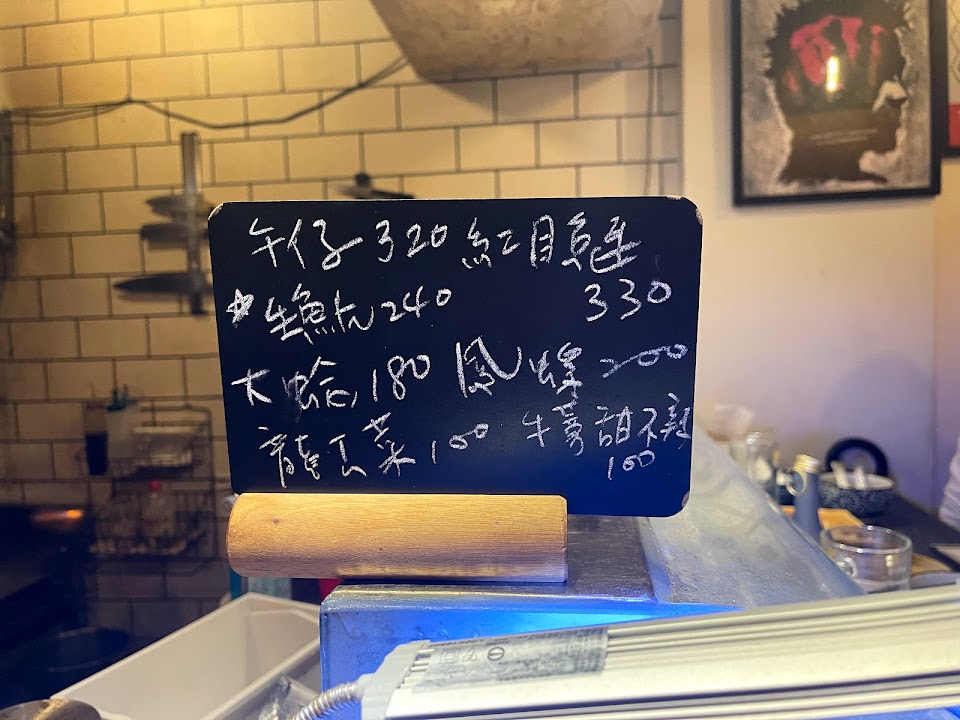 午仔 320 紅目鰱
330
生魚片 240
大蛤 180 鳳螺 200
龍下菜 100 牛蒡甜不辣
100